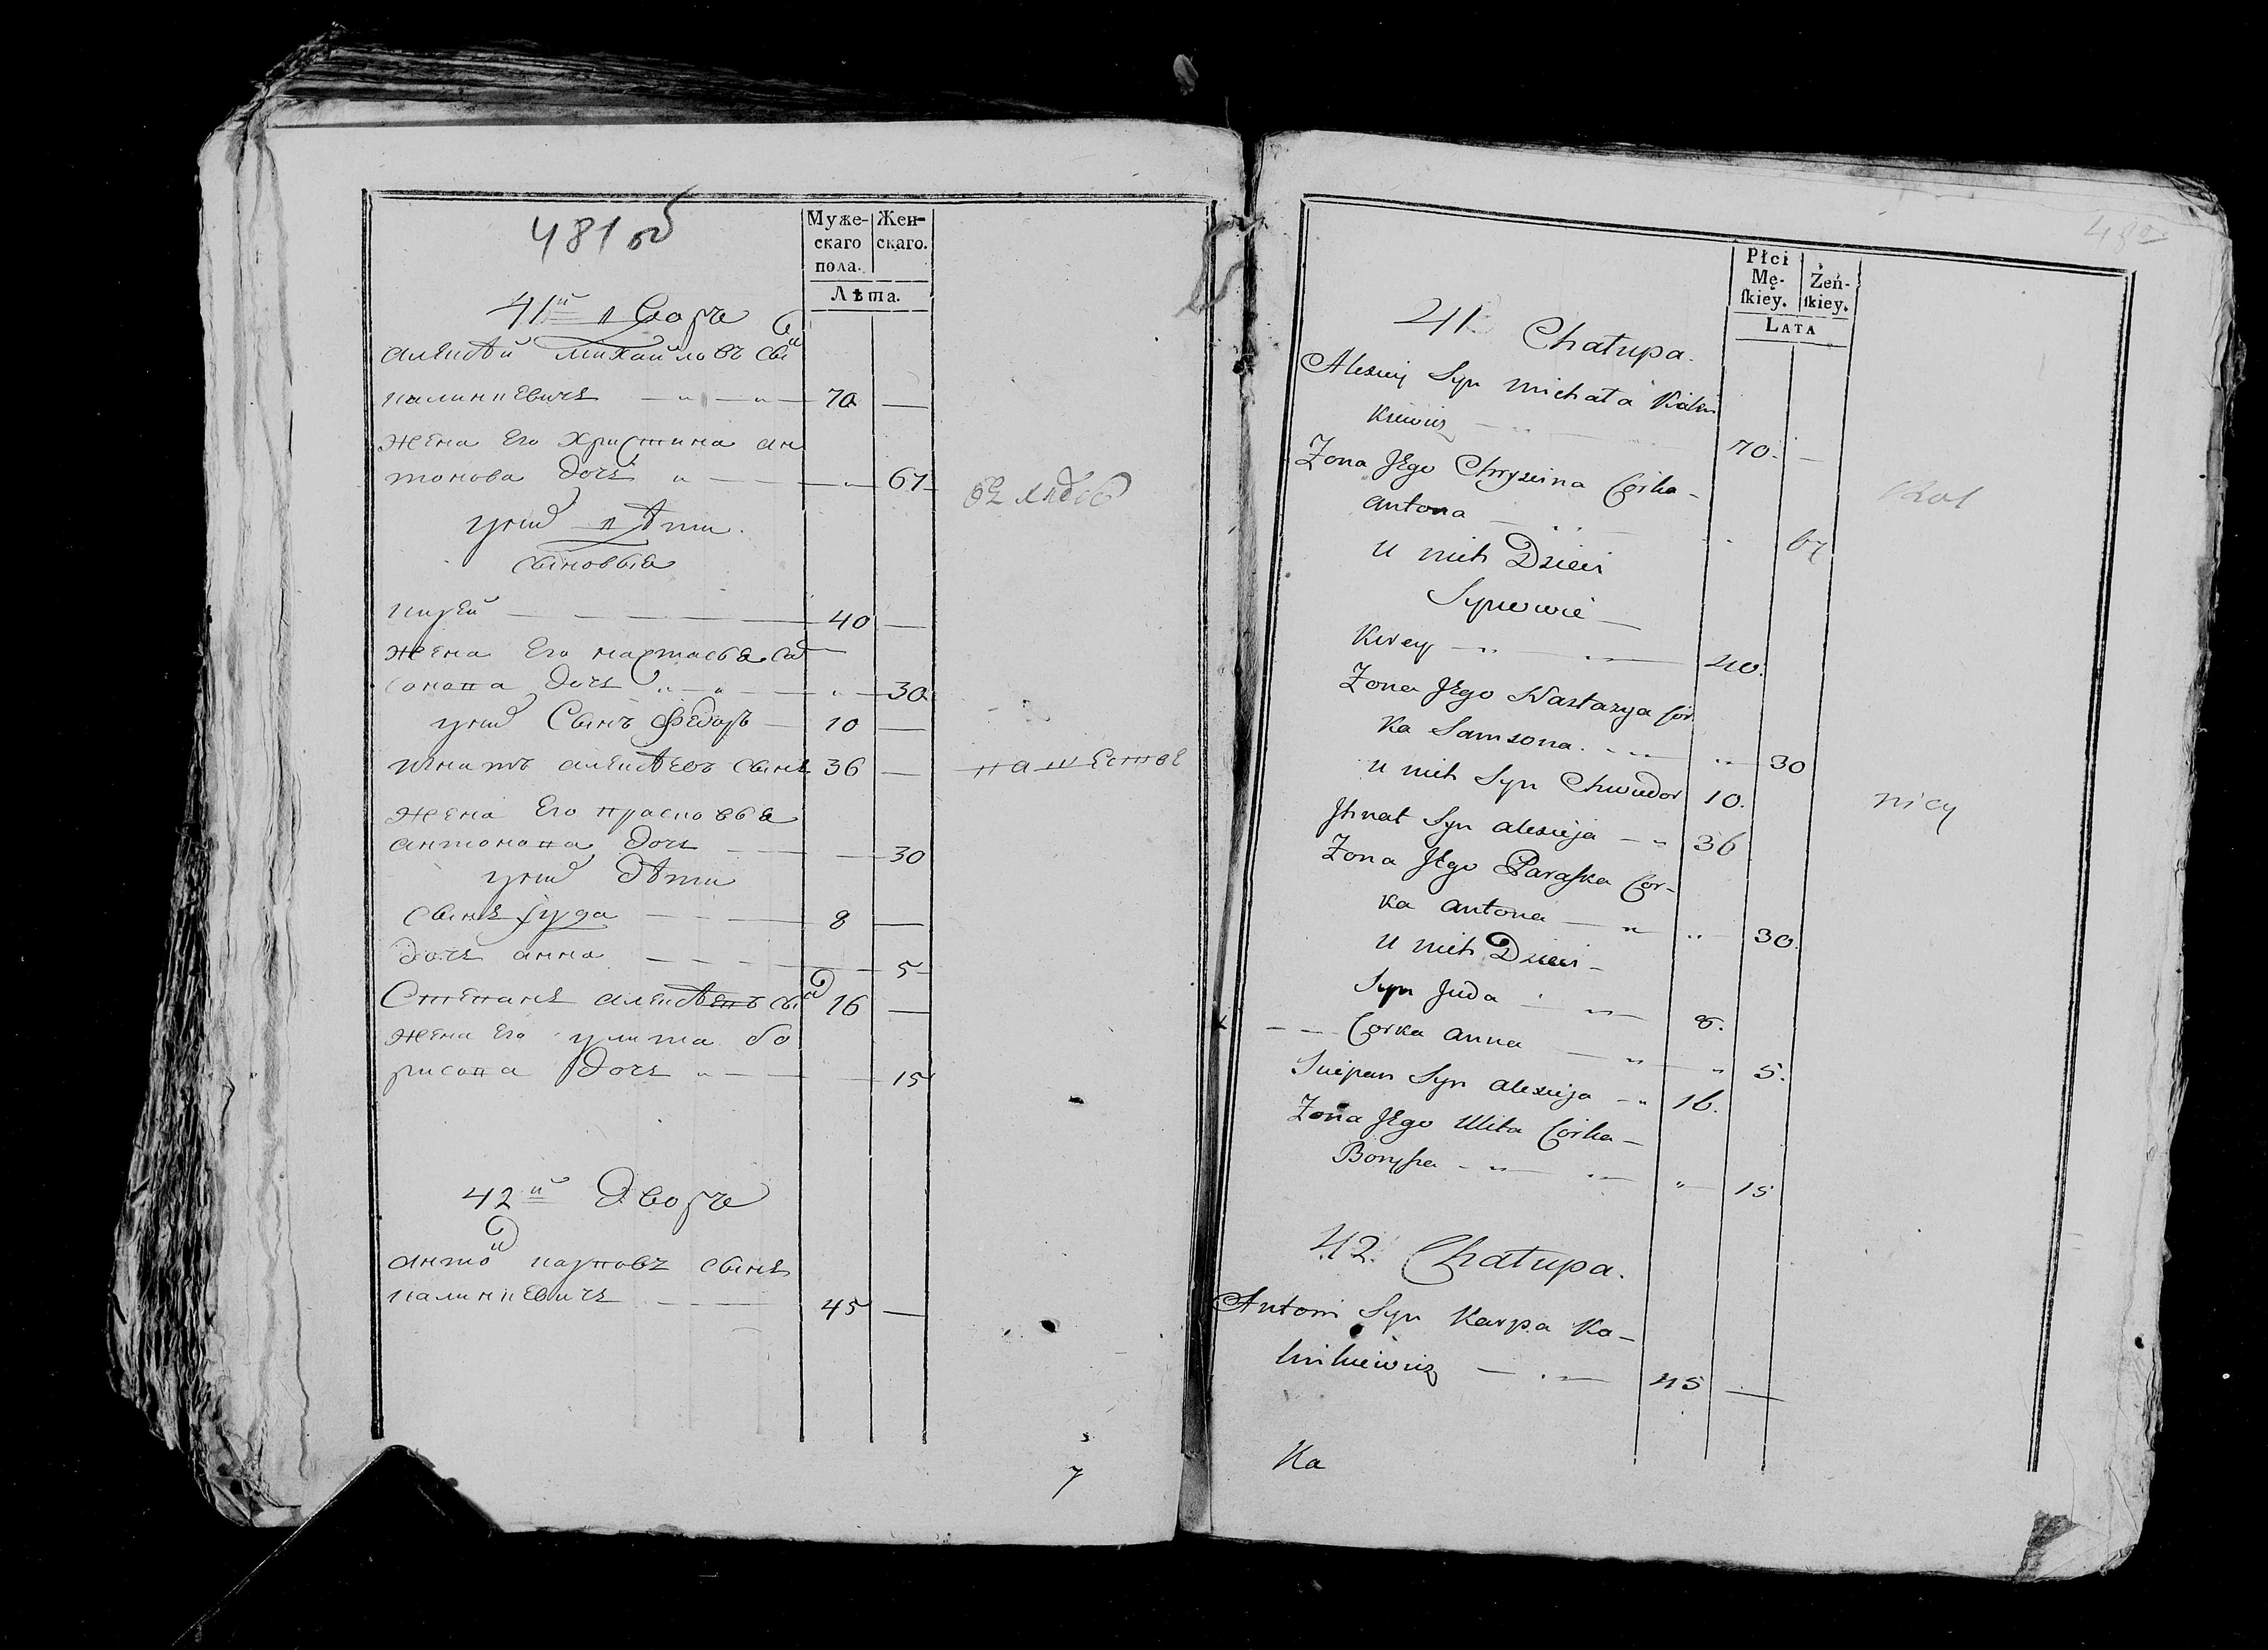 481 об
Муже-
скаго
пола.
Жен-
скаго.
Лѣта.
41й дворъ
алексѣй михайловъ сынъ
калинкевичъ 70 —
жена Его христина ан
тонова дочь 67
ихъ дѣти
сыновья
кирей 40 —
жена Его настасья са
сонова дочь 30
ихъ Сынъ федоръ 10 —
игнатъ алексѣевъ сынъ 36 —
жена Его прасковья
антонова дочь 30
ихъ дѣти
сынъ июда 8 —
дочь анна 5
Степанъ алексѣевъ сынъ 16 —
жена Его улита бо
рисова дочь 15
42й дворъ
антонъ карповъ сынъ
калинкевичъ 45 —
7
Płci
Mę-
skiey.
Żeń-
skiey.
LATA
41 Chałupa.
Alexiey Syn Michała Kalin
kiewicz 70. —
Zona Jego Chrystina Corka
Antona 67
u nich Dzieci
Synowie
Kirey 40.
Zona Jego Nastazya Cor
ka Samsona. 30
u nich Syn Chwiedor 10.
Jhnat Syn alexieja 36
Zona Jego Paraska Cor-
ka antona 30.
u nich Dzieci
Syn Juda 8.
Corka anna 5.
Sciepan Syn alexieja 16.
Zona Jego Ulita Corka
Borysa 15
42. Chałupa.
Antoni Syn Karpa Ka-
linkiewicz 45 —
Ka